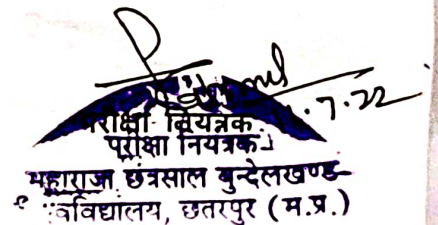 7.22
परीक्षा नियंत्रक
परीक्षा नियंत्रक
महाराजा छत्रसाल बुन्देलखण्ड
विश्वविद्यालय, छतरपुर (म.प्र.)